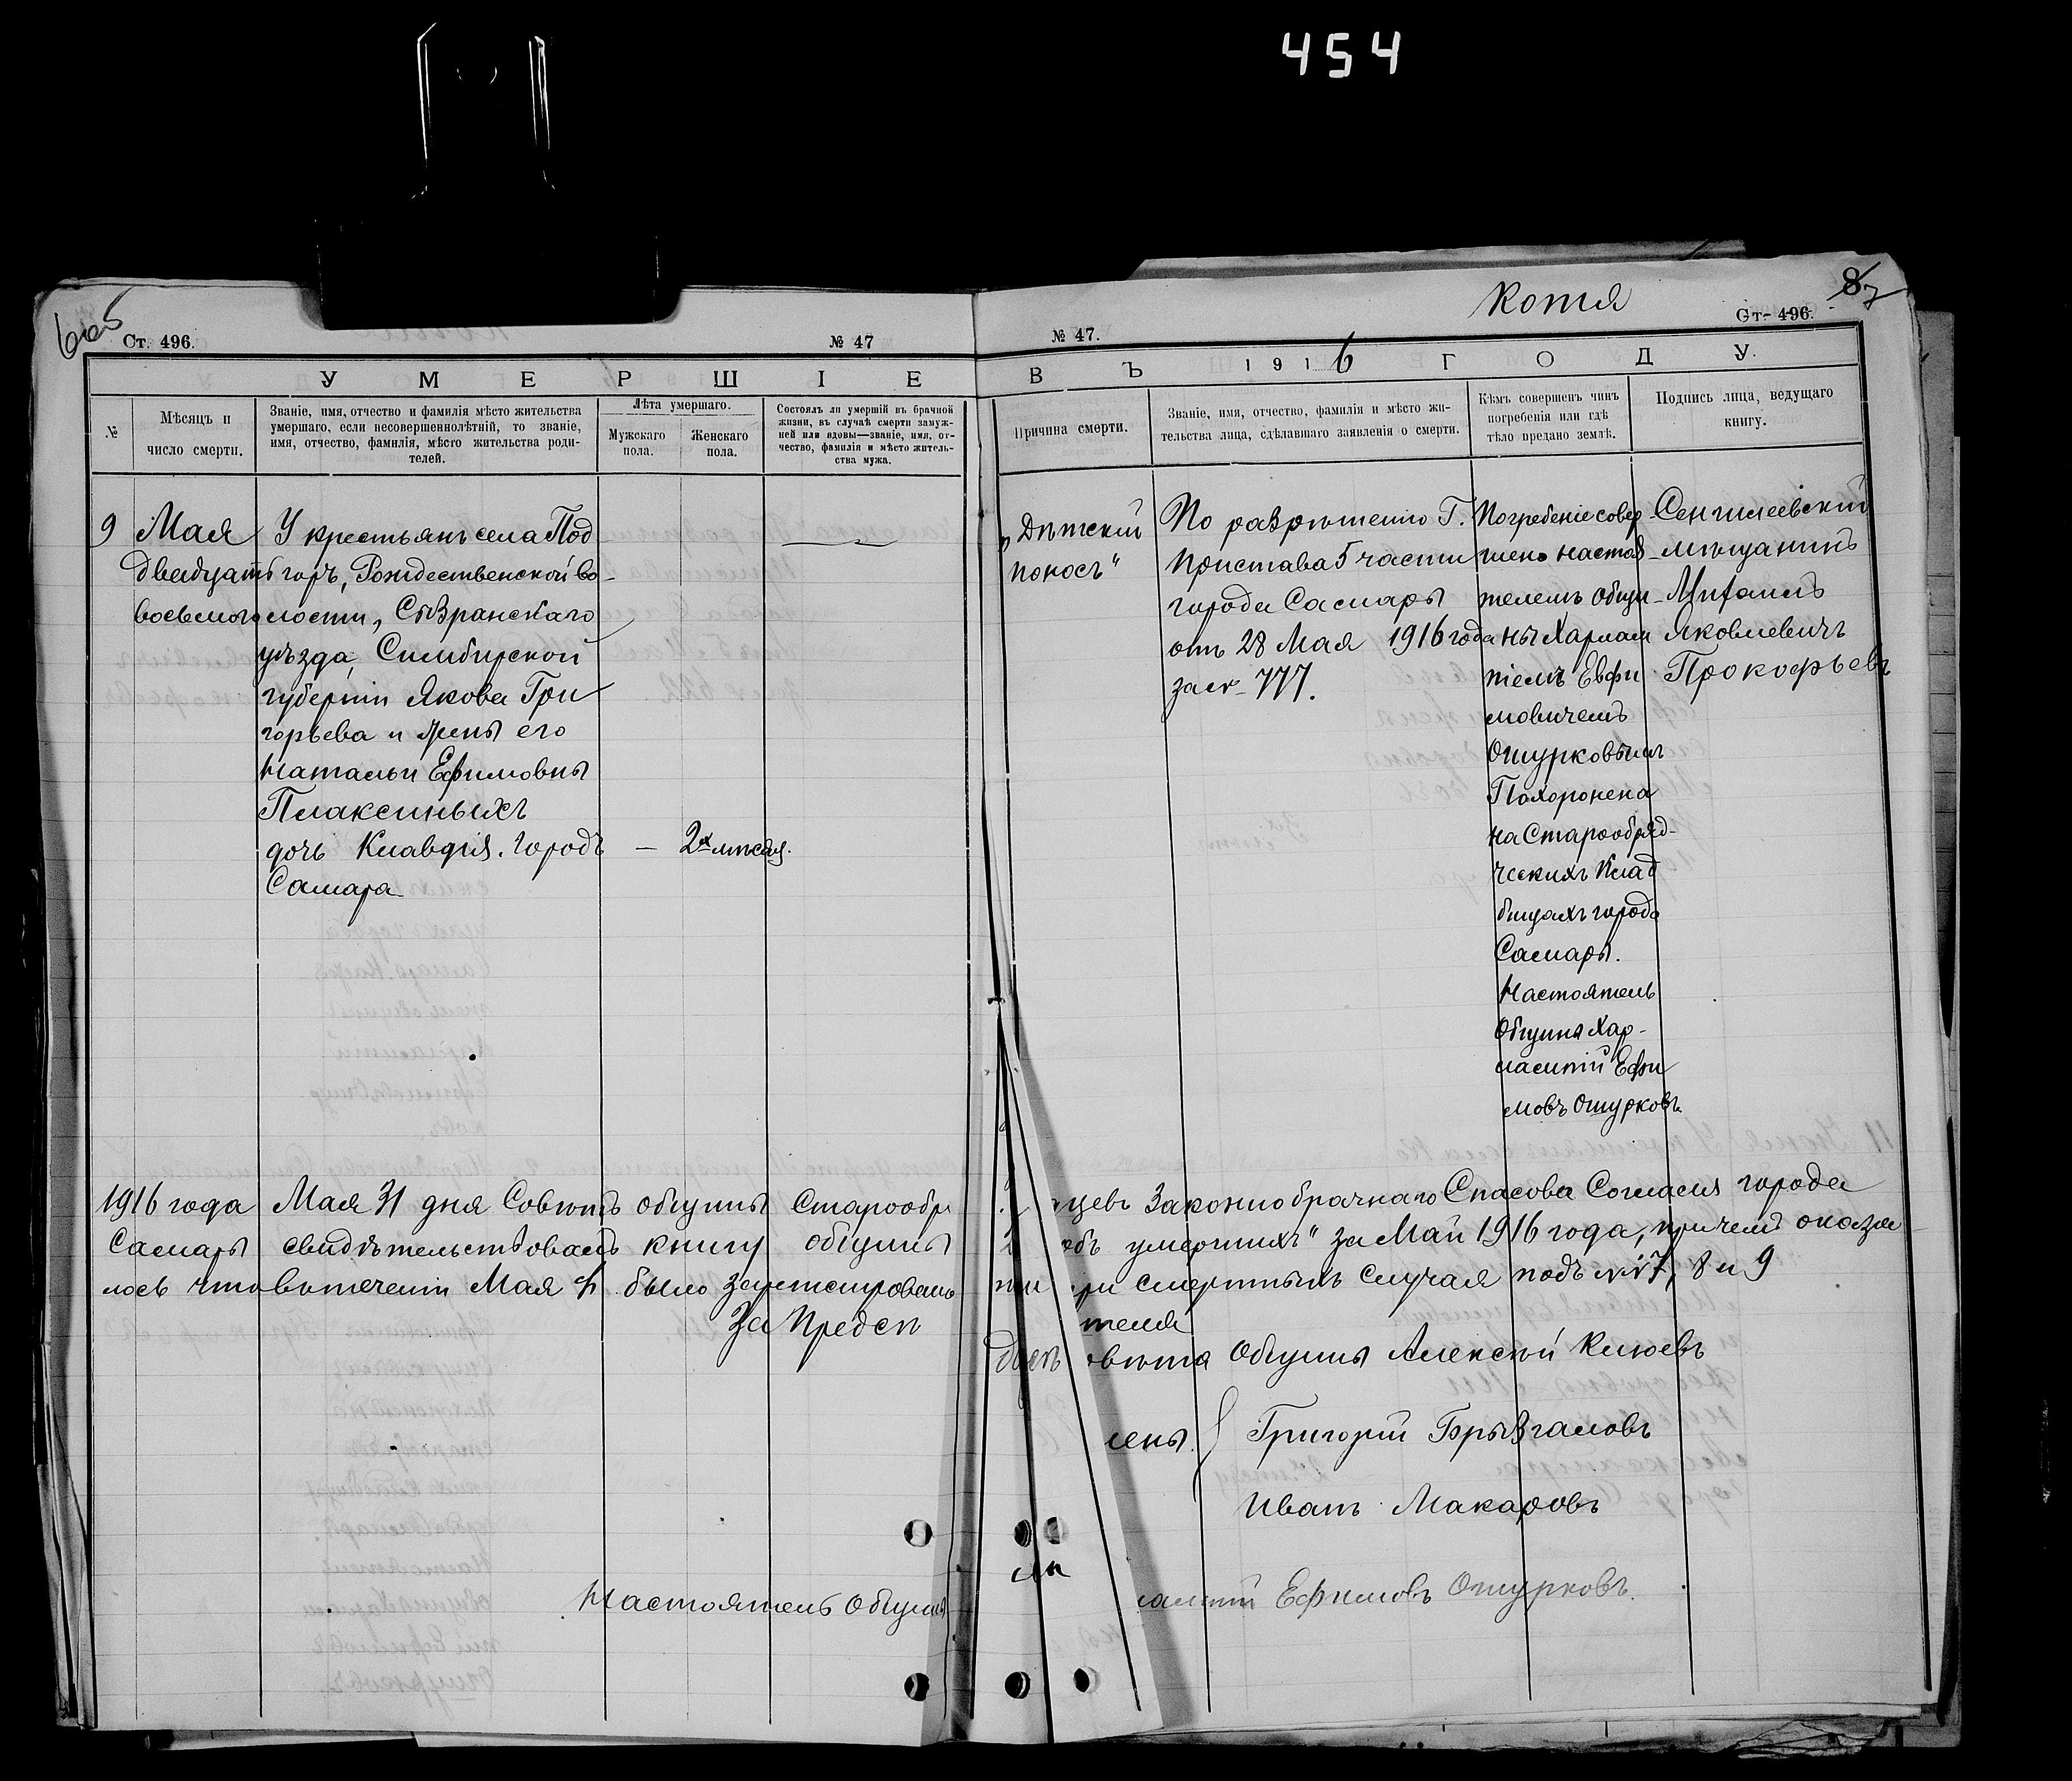 454
Копія
8
7
Ст. 496.
№ 47
№ 47.
Ст. 496.
УМЕРШІЕ
ВЪ 1916 ГОДУ.
№
Мѣсяцъ и
число смерти.
Званіе, имя, отчество и фамилія мѣсто жительства
умершаго, если несовершеннолѣтній, то званіе,
имя, отчество, фамилія, мѣсто жительства роди-
телей.
Лѣта умершаго.
Мужскаго
пола.
Женскаго
пола.
Состоялъ ли умершій въ брачной
жизни, въ случаѣ смерти замуж-
ней или вдовы—званіе, имя, от-
чество, фамилія и мѣсто житель-
ства мужа.
Причина смерти.
Званіе, имя, отчество, фамилія и мѣсто жи-
тельства лица, сдѣлавшаго заявленія о смерти.
Кѣмъ совершенъ чинъ
погребенія или гдѣ
тѣло предано землѣ.
Подпись лица, ведущаго
книгу.
9
Мая
двадцать
восьмого
У крестьянъ села Под
горъ, Рождественской во-
лости, Сызранскаго
уѣзда, Симбирской
губерніи Якова Гри
горьева и жены его
Натальи Ефимовны
Плаксиныхъ
дочь Клавдія. городъ
Самара
— 2х мѣсяц.
„Дѣтскій
поносъ"
По разрѣшенію Г.
Пристава 5 части
города Самары
отъ 28 Мая 1916 года
за № 777.
Погребеніе совер
шено настоя
телемъ общи
ны Харлам
піемъ Евфи
мовичемъ
Ошурковымъ
Похоронена
на Старообряд-
ческихъ Клад
бищахъ города
Самары.
Настоятель
Общины Хар-
лампій Ефи
мовъ Ошурковъ
Сенгилеевскій
мѣщанинъ
Михаилъ
Яковлевичъ
Прокофьевъ
1916 года Мая 31 дня Совѣтъ общины Старообр цевъ Законнобрачнаго Спасова Согласія города
Самары свидѣтельствовалъ книгу общины объ умершихъ" за Май 1916 года, при чемъ оказа
лось что въ теченіи Мая было зарегистрировано три смертныхъ случая подъ №№ 7, 8 и 9
За Предсѣ теля
овѣта Общины Алексѣй Клюевъ
лены. Григорій Брызгаловъ
Иванъ Макаровъ
Настоятель Общины лампій Ефимовъ Ошурковъ.